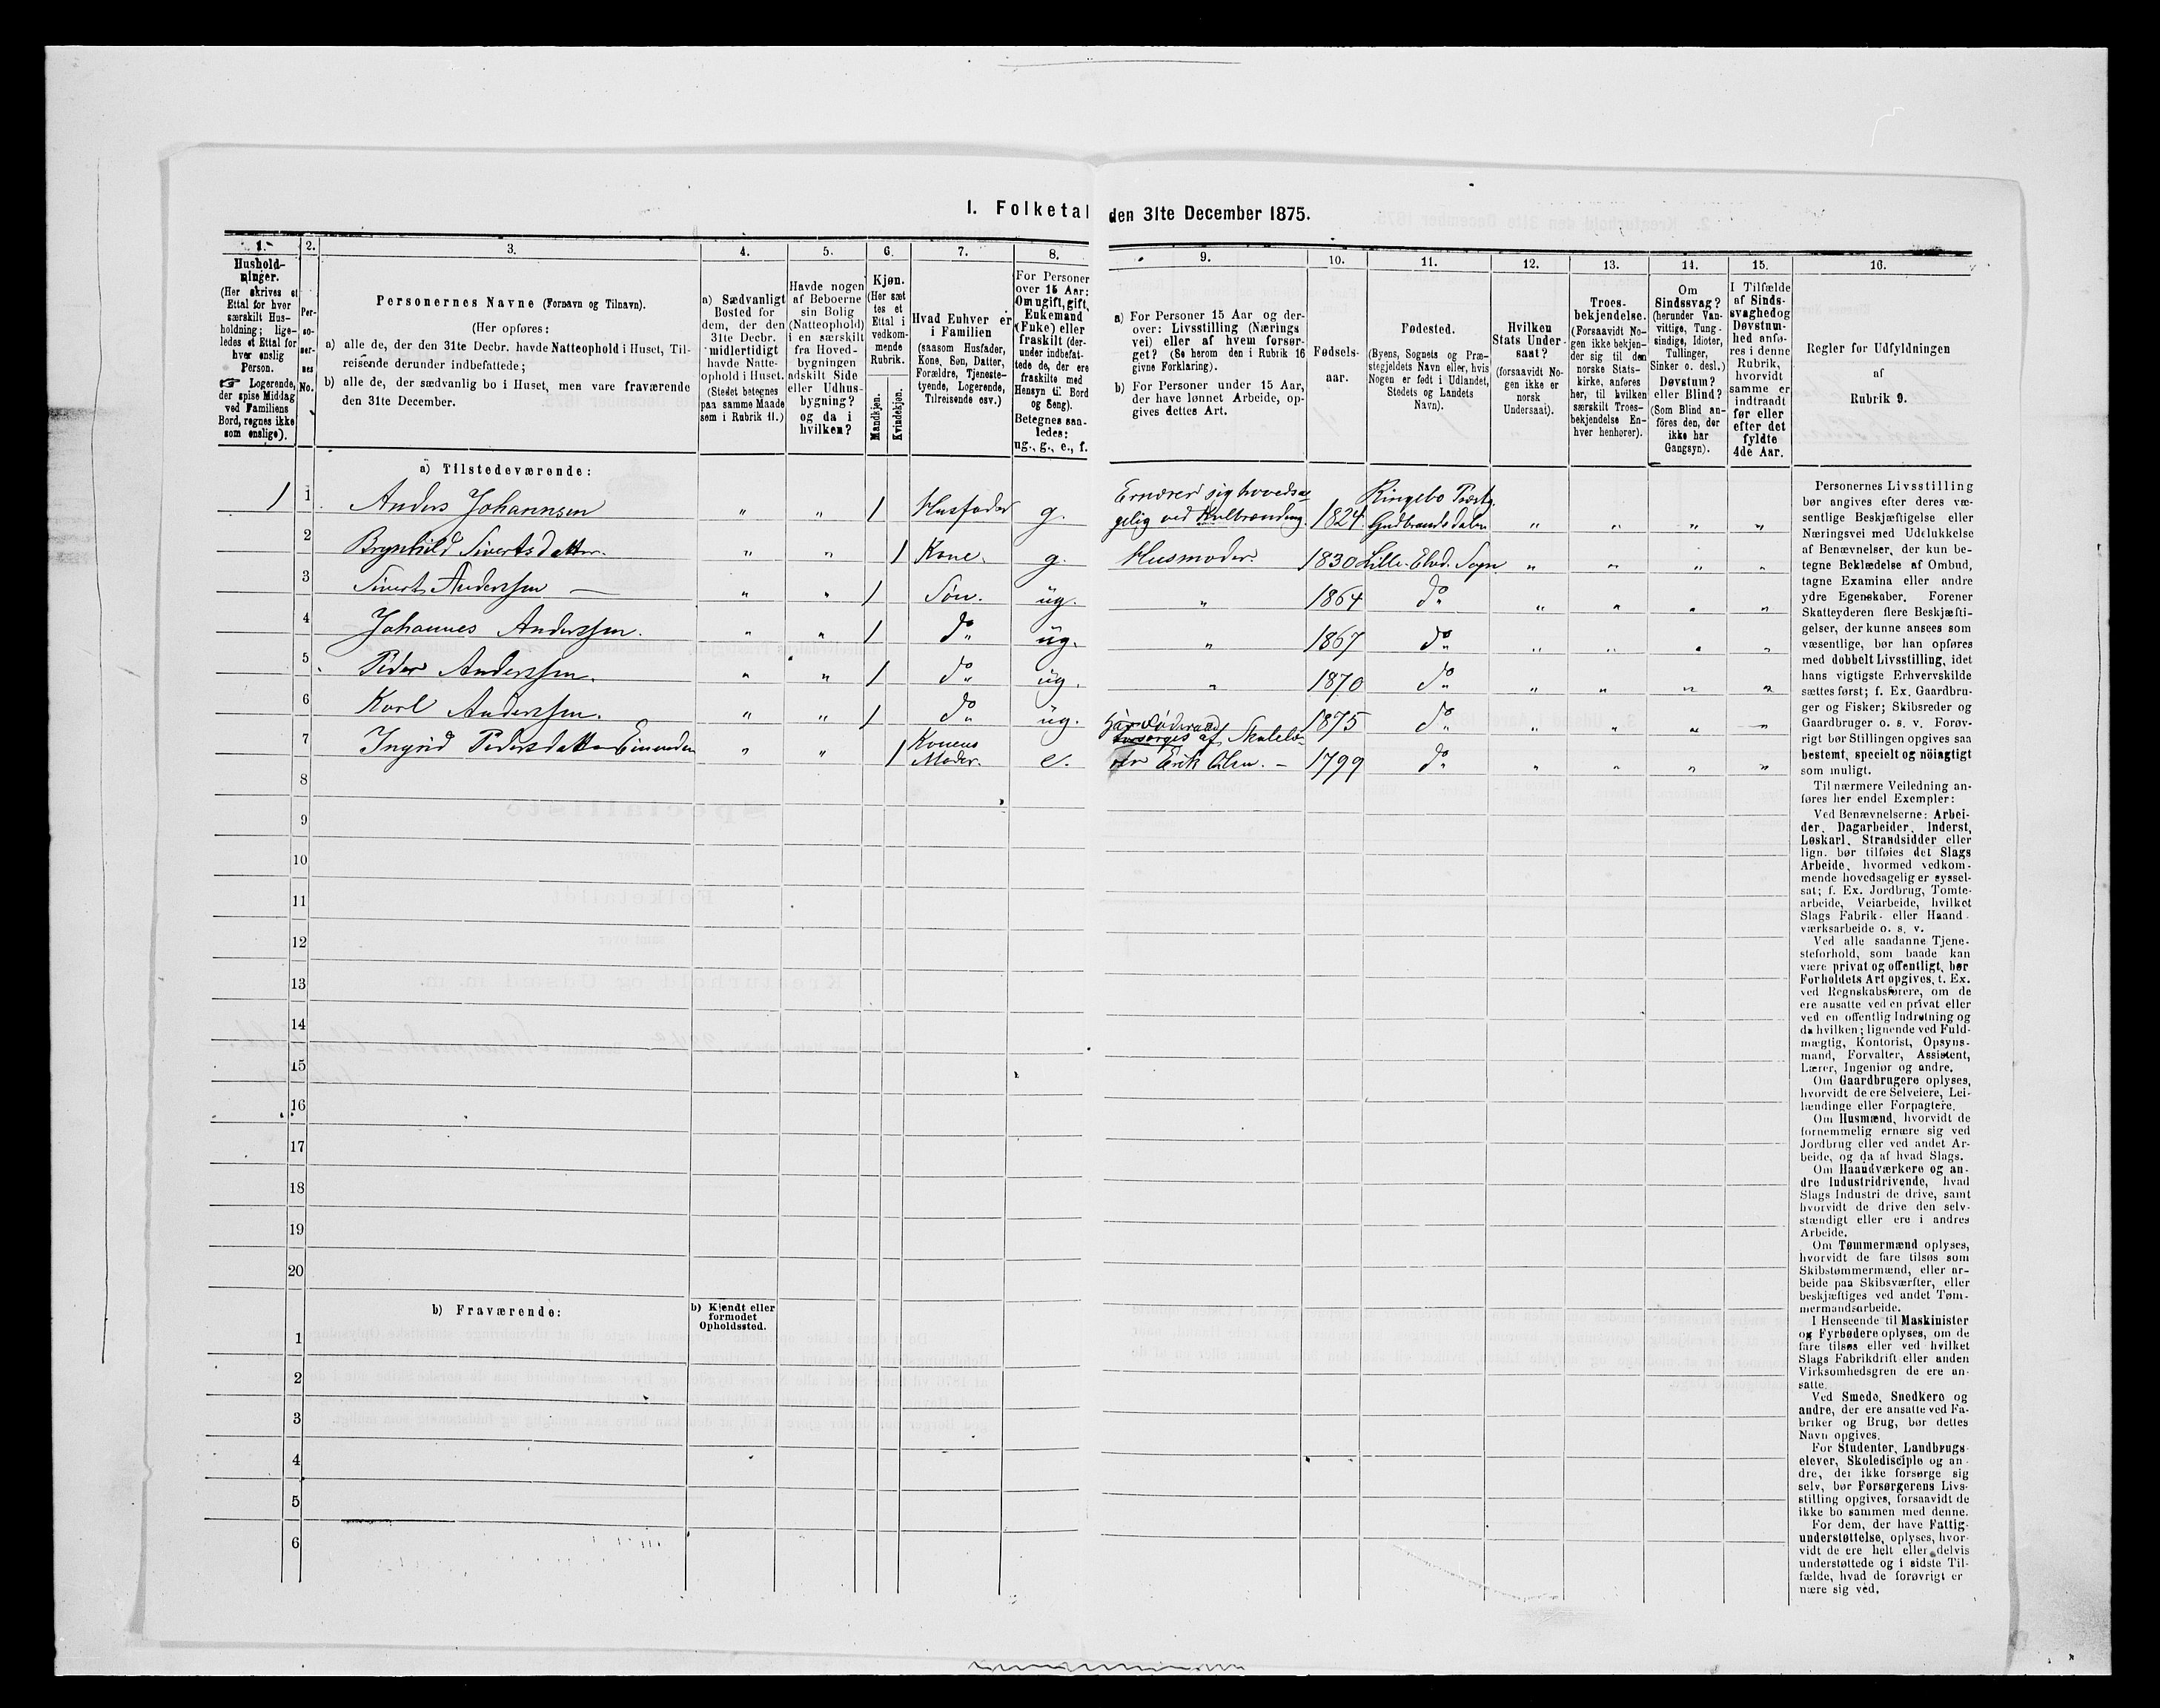 I. Folketal den 31te December 1875.
1. 2. 3. 4. 5. 6. 7. 8. 9. 10. 11. 12. 13. 14. 15. 16.
Hushold-
ninger.
(Her skrives et
Ettal for hver
særskilt Hus-
holdning; lige-
ledes et Ettal for
hver enslig
Person.
☞ Logerende,
der spise Middag
ved Familiens
Bord, regnes ikke
som enslige).
Per-
so-
ner-
nes
No.
Personernes Navne (Fornavn og Tilnavn).
(Her opføres:
a) alle de, der den 31te Decbr. havde Natteophold i Huset, Til-
reisende derunder indbefattede;
b) alle de, der sædvanlig bo i Huset, men vare fraværende
den 31te December.
a) Sædvanligt
Bosted for
dem, der den
31te Decbr.
midlertidigt
havde Natte-
ophold i Huset.
(Stedet betegnes
paa samme Maade
som i Rubrik 11.)
Havde nogen
af Beboerne
sin Bolig
(Natteophold)
i en særskilt
fra Hoved-
bygningen
adskilt Side
eller Udhus-
bygning?
og da i
hvilken?
Kjøn.
(Her sæt
tes et
Ettal i
vedkom-
mende
Rubrik.
Mandkjøn.
Kvindekjøn.
Hvad Enhver er
i Familien
(saasom Husfader,
Kone, Søn, Datter,
Forældre, Tjeneste-
tyende, Logerende,
Tilreisende osv.)
For Personer
over 15 Aar:
Om ugift, gift,
Enkemand
(Enke) eller
fraskilt (der-
under indbefat-
tede de, der ere
fraskilte med
Hensyn til Bord
og Seng).
Betegnes saa-
ledes:
ug., g., e., f.
a) For Personer 15 Aar og der-
over: Livsstilling (Nærings
vei) eller af hvem forsør-
get? (Se herom den i Rubrik 16
givne Forklaring).
b) For Personer under 15 Aar,
der have lønnet Arbeide, op-
gives dettes Art.
Fødsels-
aar.
Fødested.
(Byens, Sognets og Præ-
stegjeldets Navn eller, hvis
Nogen er født i Udlandet,
Stedets og Landets
Navn).
Hvilken
Stats Under-
saat?
(forsaavidt No-
gen ikke er
norsk
Undersaat).
Troes-
bekjendelse.
(Forsaavidt No-
gen ikke bekjen-
der sig til den
norske Stats-
kirke, anføres
her, til hvilken
særskilt Troes-
bekjendelse En-
hver henhører).
Om
Sindssvag?
(herunder Van-
vittige, Tung-
sindige, Idioter,
Tullinger,
Sinker o. desl.)
Døvstum?
eller Blind?
(Som Blind an-
føres den, der
ikke har
Gangsyn).
I Tilfælde
af Sinds-
svaghed og
Døvstum-
hed anfø-
res i denne
Rubrik,
hvorvidt
samme er
indtraadt
før eller
efter det
fyldte
4de Aar.
Regler for Udfyldningen
af
Rubrik 9.
a) Tilstedeværende:
1 1 Anders Johannsen " " 1 Husfader g. Ernærer sig hovedsa-
gelig ved Kulbrænding 1824. Ringebo Præstg. Gudbrandsdalen " " " "
2 Brynhild Sivertsdatter. " " 1 Kone. g. Husmoder. 1830 Lille-Elvd. Sogn " " " "
3 Sivert Anderssen — " " 1 Søn. ug. " 1864 do " " " "
4 Johannes Anderssen. " " 1 do ug. " 1867 do " " " "
5 Peder Anderssen. " " 1 do ug. " 1870 do " " " "
6 Karl Anderssen. " " 1 do ug. 1875 do " " " "
7 Ingrid Pedersdatter " " 1 Konens
Moder. e. af
Erik Olsen. – 1799 do " " " "
8
9
10
11
12
13
14
15
16
17
18
19
20
b) Fraværende:
b) Kjendt eller
formodet
Opholdssted.
1
2
3
4
5
6
Personernes Livsstilling
bør angives efter deres væ-
sentlige Beskjæftigelse eller
Næringsvei med Udelukkelse
af Benævnelser, der kun be-
tegne Beklædelse af Ombud,
tagne Examina eller andre
ydre Egenskaber. Forener
Skatteyderen flere Beskjæfti-
gelser, der kunne ansees som
væsentlige, bør han opføres
med dobbelt Livsstilling, idet
hans vigtigste Erhvervskilde
sættes først; f. Ex. Gaardbru-
ger og Fisker; Skibsreder og
Gaardbruger o. s. v. Forøv-
rigt bør Stillingen opgives saa
bestemt, specielt og nöiagtigt
som muligt.
Til nærmere Veiledning an-
føres her endel Exempler:
Ved Benævnelserne: Arbei-
der, Dagarbeider, Inderst,
Løskarl, Strandsidder eller
lign. bør tilføies det Slags
Arbeide, hvormed vedkom-
mende hovedsagelig er syssel-
sat; f. Ex. Jordbrug, Tomte-
arbeide, Veiarbeide, hvilket
Slags Fabrik- eller Haand-
værksarbeide o. s. v.
Ved alle saadanne Tjene-
steforhold, som baade kan
være privat og offentligt, bør
Forholdets Art opgives, t. Ex.
ved Regnskabsførere, om de
ere ansatte ved en privat eller
ved en offentlig Indretning og
da hvilken; lignende ved Fuld-
mægtig, Kontorist, Opsyns-
mand, Forvalter, Assistent,
Lærer, Ingeniør og andre.
Om Gaardbrugere oplyses,
hvorvidt de ere Selveiere, Lei-
lændinge eller Forpagtere.
Om Husmænd, hvorvidt de
fornemmelig ernære sig ved
Jordbrug eller ved andet Ar-
beide, og da af hvad Slags.
Om Haandværkere og an-
dre Industridrivende, hvad
Slags Industri de drive, samt
hvorvidt de drive den selv-
stændigt eller ere i andres
Arbeide.
Om Tømmermænd oplyses,
hvorvidt de fare tilsøs som
Skibstømmermænd, eller ar-
beide paa Skibsværfter, eller
beskjæftiges ved andet Tøm-
mermandsarbeide.
I Henseende til Maskinister
og Fyrbødere oplyses, om de
fare tilsøs eller ved hvilket
Slags Fabrikdrift eller anden
Virksomhedsgren de ere an-
satte.
Ved Smede, Snedkere og
andre, der ere ansatte ved Fa-
briker og Brug, bør dettes
Navn opgives.
For Studenter, Landbrugs-
elever, Skoledisciple og an-
dre, der ikke forsørge sig
selv, bør Forsørgerens Livs-
stilling opgives, forsaavidt de
ikke bo sammen med denne.
For dem, der have Fattig-
understøttelse, oplyses, hvor-
vidt de ere helt eller delvis
understøttede og i sidste Til-
fælde, hvad de forøvrigt er
nære sig ved.